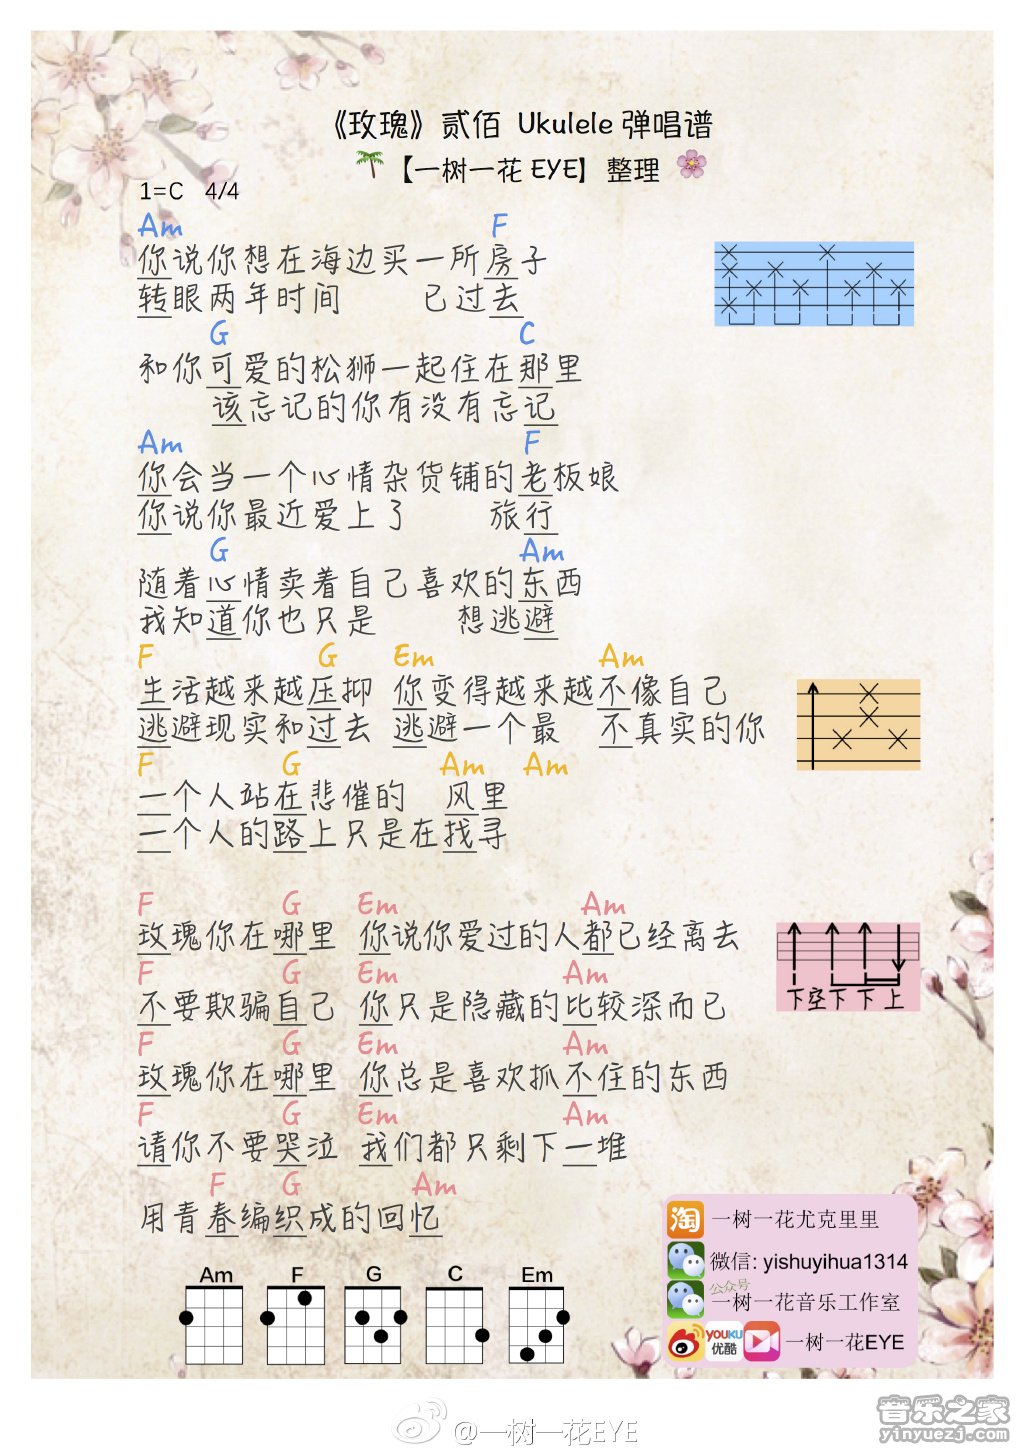 《玫瑰》贰佰 Ukulele 弹唱谱
【一树一花 EYE】 整理
1=C 4/4
Am F
你说你想在海边买一所房子
转眼两年时间 已过去
G C
和你可爱的松狮一起住在那里
该忘记的你有没有忘记
Am F
你会当一个心情杂货铺的老板娘
你说你最近爱上了 旅行
G Am
随着心情卖着自己喜欢的东西
我知道你也只是 想逃避
F G Em Am
生活越来越压抑 你变得越来越不像自己
逃避现实和过去 逃避一个最 不真实的你
F G Am Am
一个人站在悲催的 风里
一个人的路上只是在找寻
F G Em Am
玫瑰你在哪里 你说你爱过的人都已经离去
下空下下上
F G Em Am
不要欺骗自己 你只是隐藏的比较深而已
F G Em Am
玫瑰你在哪里 你总是喜欢抓不住的东西
F G Em Am
请你不要哭泣 我们都只剩下一堆
F G Am
用青春编织成的回忆
Am F G C Em
淘 一树一花尤克里里
微信: yishuyihua1314
公众号
一树一花音乐工作室
YOUKU
优酷
一树一花EYE
@一树一花EYE
音乐之家
yinyuezj.com